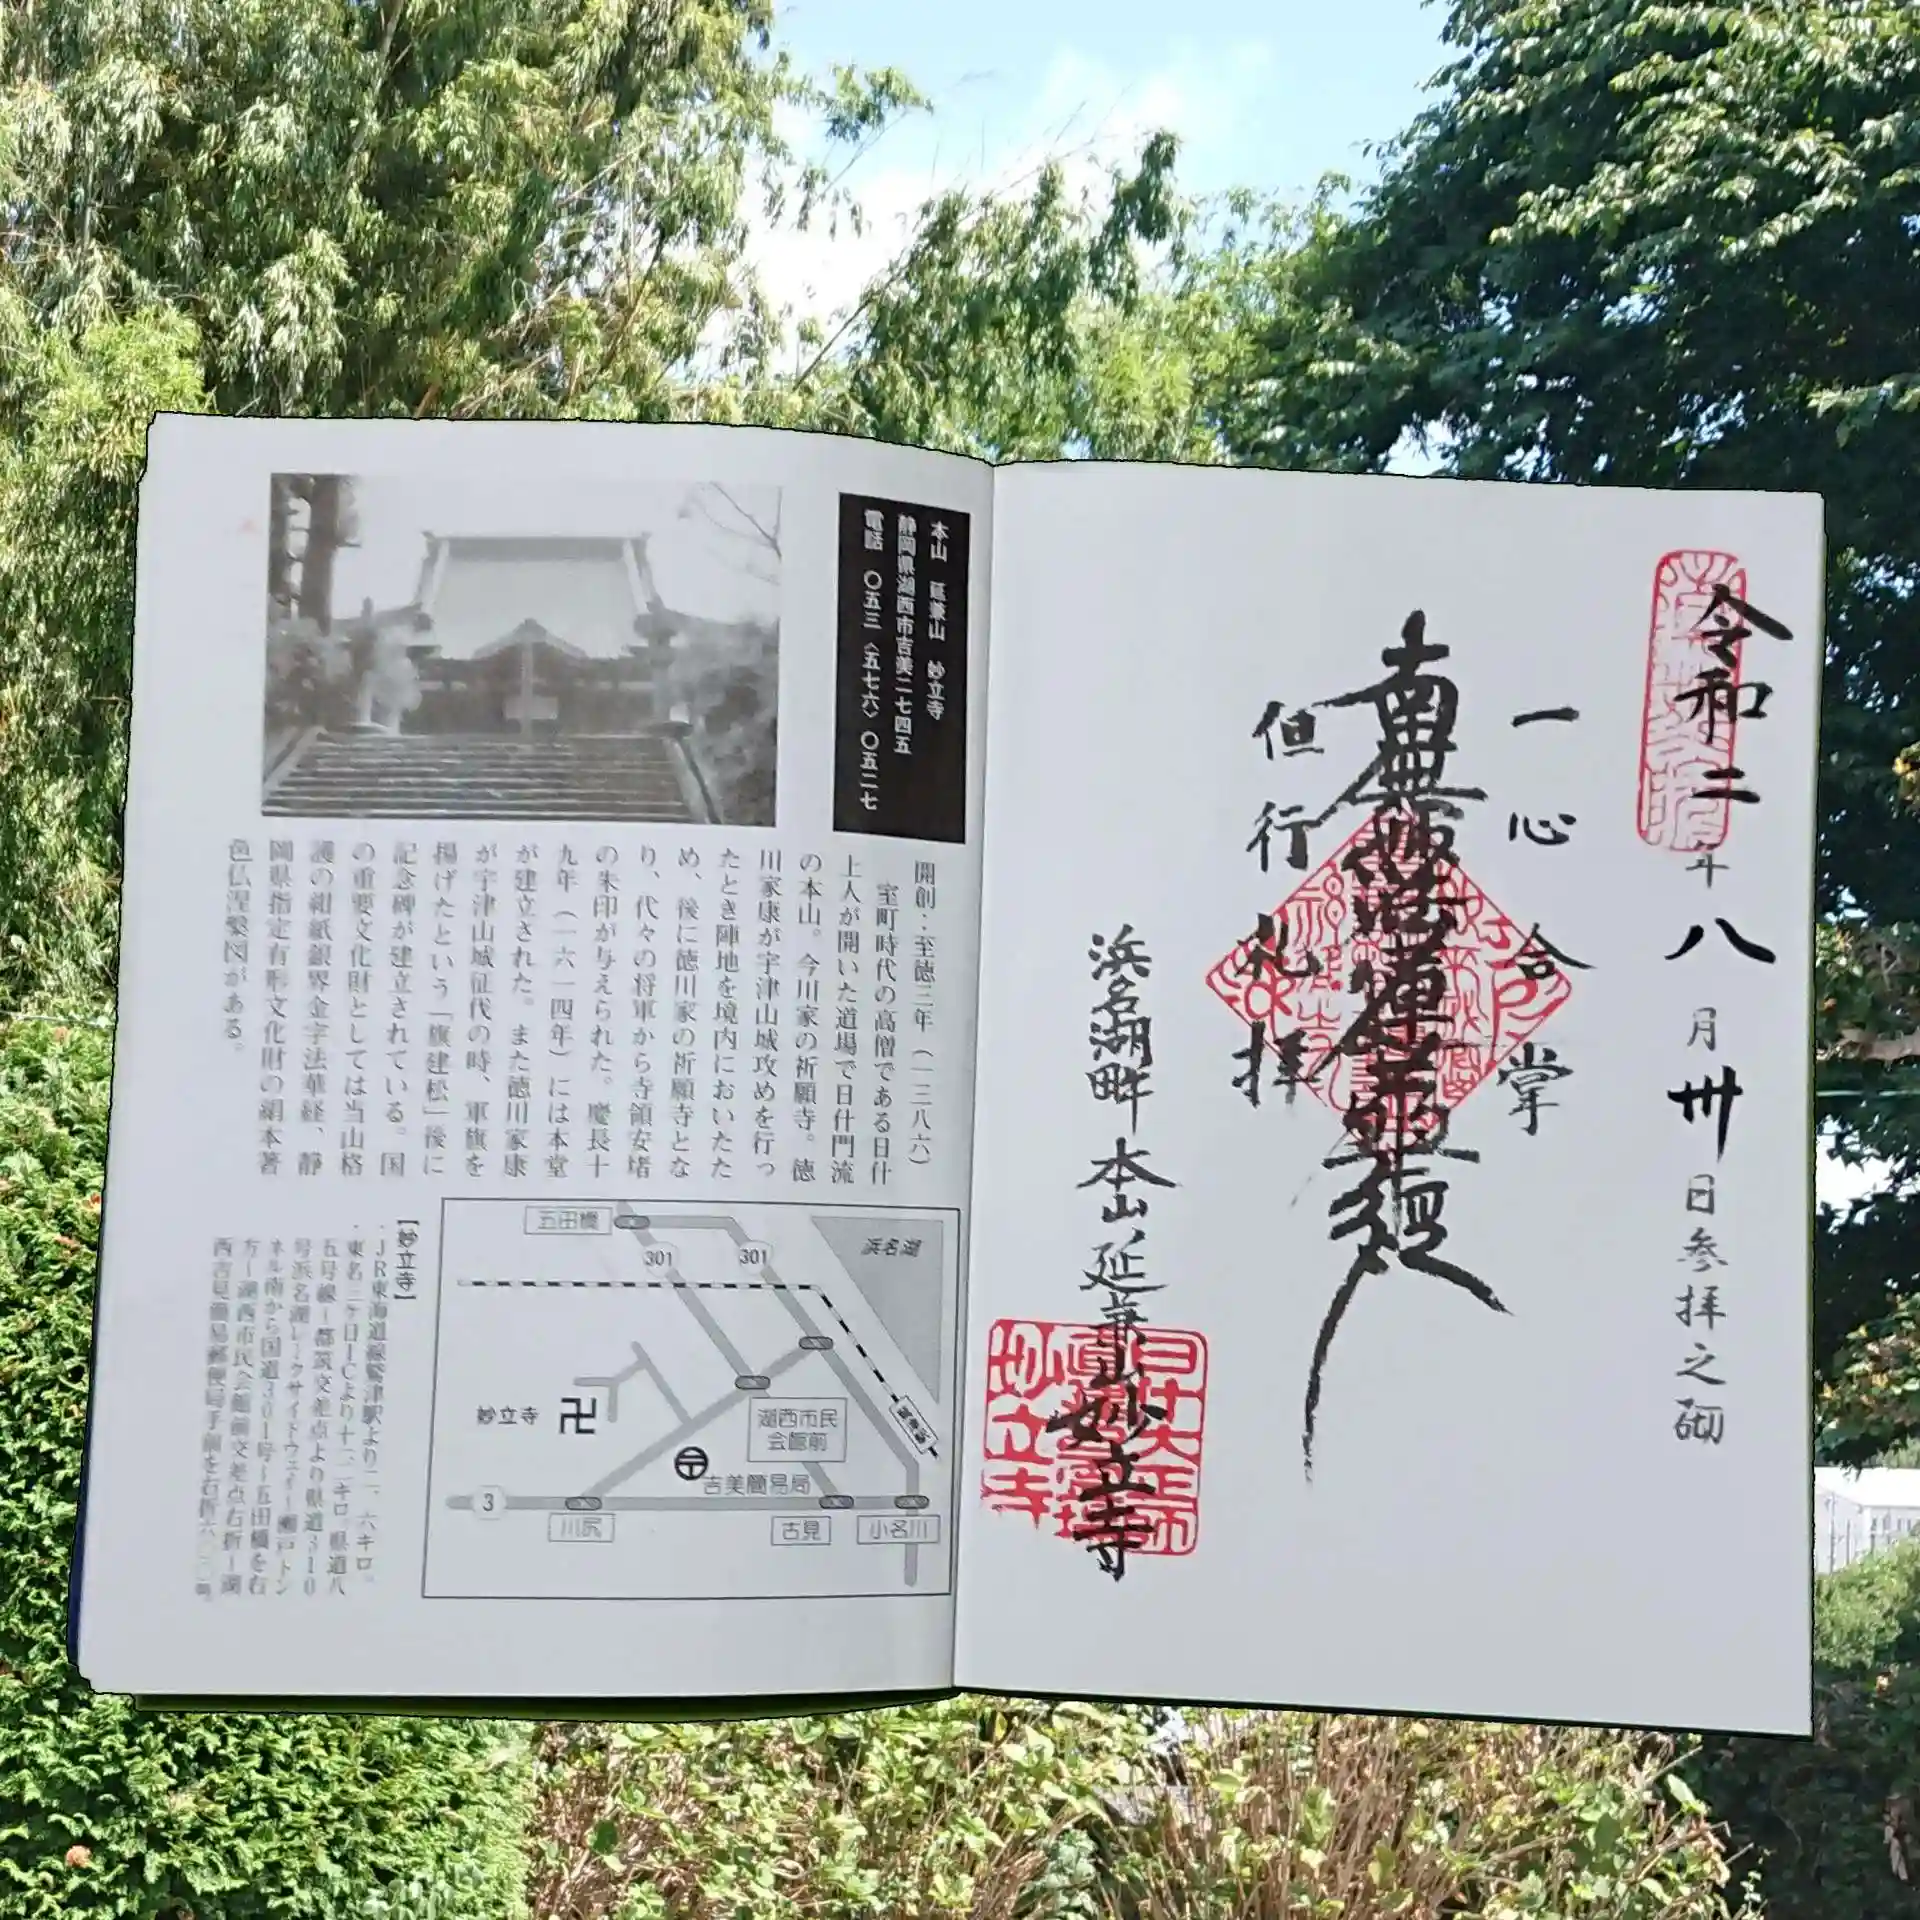 令和二年八月卅日参拝之砌
一心合掌
南無妙法蓮華経
但行礼拝
浜名湖畔 本山 延兼山 妙立寺
妙立寺
本山 延兼山 妙立寺
静岡県湖西市吉美二七四五
電話 〇五三〈五七六〉〇五二七
開創:至徳三年(一三八六)
室町時代の高僧である日什
上人が開いた道場で日什門流
の本山。今川家の祈願寺。徳
川家康が宇津山城攻めを行っ
たとき陣地を境内においたた
め、後に徳川家の祈願寺とな
り、代々の将軍から寺領安堵
の朱印が与えられた。慶長十
九年(一六一四年)には本堂
が建立された。また徳川家康
が宇津山城征伐の時、軍旗を
揚げたという「旗建松」後に
記念碑が建立されている。国
の重要文化財としては当山格
護の紺紙銀界金字法華経、静
岡県指定有形文化財の絹本著
色仏涅槃図がある。
五田橋
301
301
浜名湖
妙立寺
卍
湖西市民
会館前
吉美簡易局
3
川尻
古見
小名川
【妙立寺】
・JR東海道線鷲津駅より二、六キロ。
・東名三ケ日ICより十二キロ 県道八
五号線–都筑交差点より県道310
号浜名湖レークサイドウェイ–瀬戸トン
ネル南から国道301号–五田橋を右
方–湖西市民会館前交差点右折–湖
西吉見簡易郵便局手前を右折